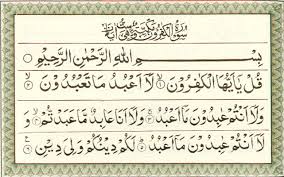 سُوْرَةُ الْكٰفِرُوْنَ مَكِّيَّةٌ وَهِيَ سِتُّ
بِسْمِ اللهِ الرَّحْمٰنِ الرَّحِيْمِ
قُلْ يٰۤاَيُّهَا الْكٰفِرُوْنَ ۝۱ لَاۤ اَعْبُدُ مَا تَعْبُدُوْنَ ۝۲
وَلَاۤ اَنْتُمْ عٰبِدُوْنَ مَاۤ اَعْبُدُ ۝۳ وَلَاۤ اَنَا عَابِدٌ مَّا عَبَدْتُّمْ ۝۴ وَ
لَاۤ اَنْتُمْ عٰبِدُوْنَ مَاۤ اَعْبُدُ ۝۵ لَكُمْ دِيْنُكُمْ وَلِيَ دِيْنِ ۝۶